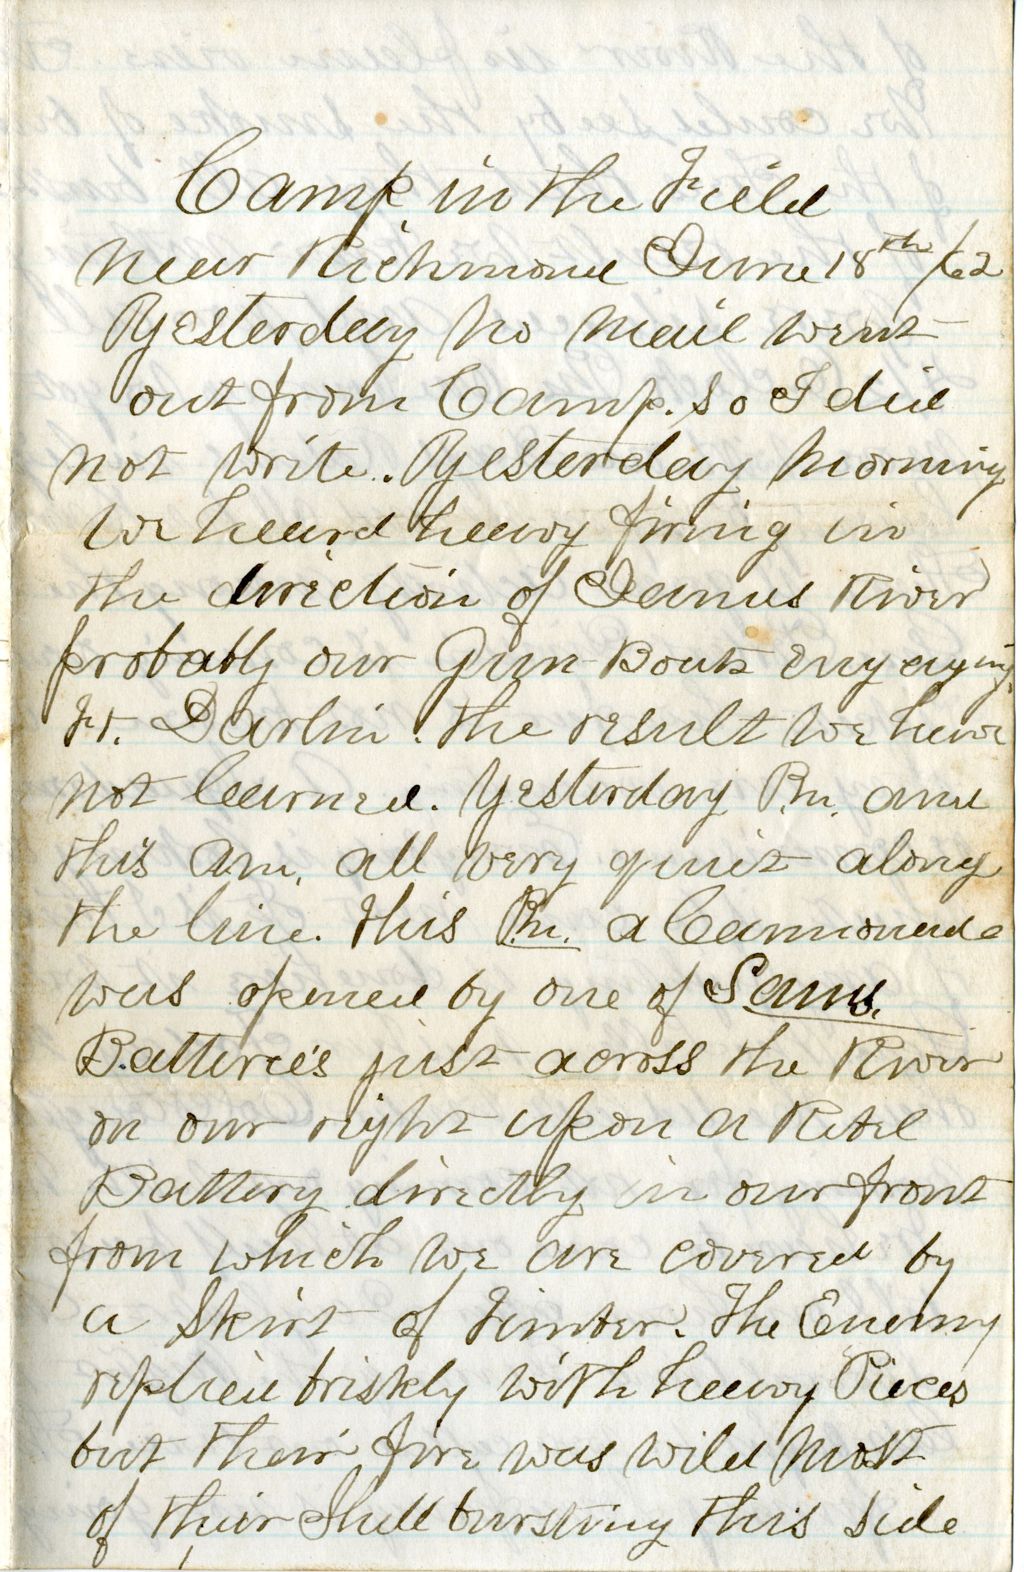 Camp in the Field
near Richmond June 18th /62
Yesterday no mail went
out from Camp. So I did
not write. Yesterday morning
we heard heavy firing in
the direction of James River
probably our Gun Boats engaging
Ft. Darlin. The result we have
not learned. Yesterday P.m. and
this a.m. all very quiet along
the line. This P.m. a Cannonade
was opened by one of Sams.
Batteries just across the River
on our right upon a Rebel
Battery directly in our front
from which we are covered by
a Skirt of Timber. The Enemy
replied briskly with heavy Pieces
but their fire was wild most
of their Shell bursting this side